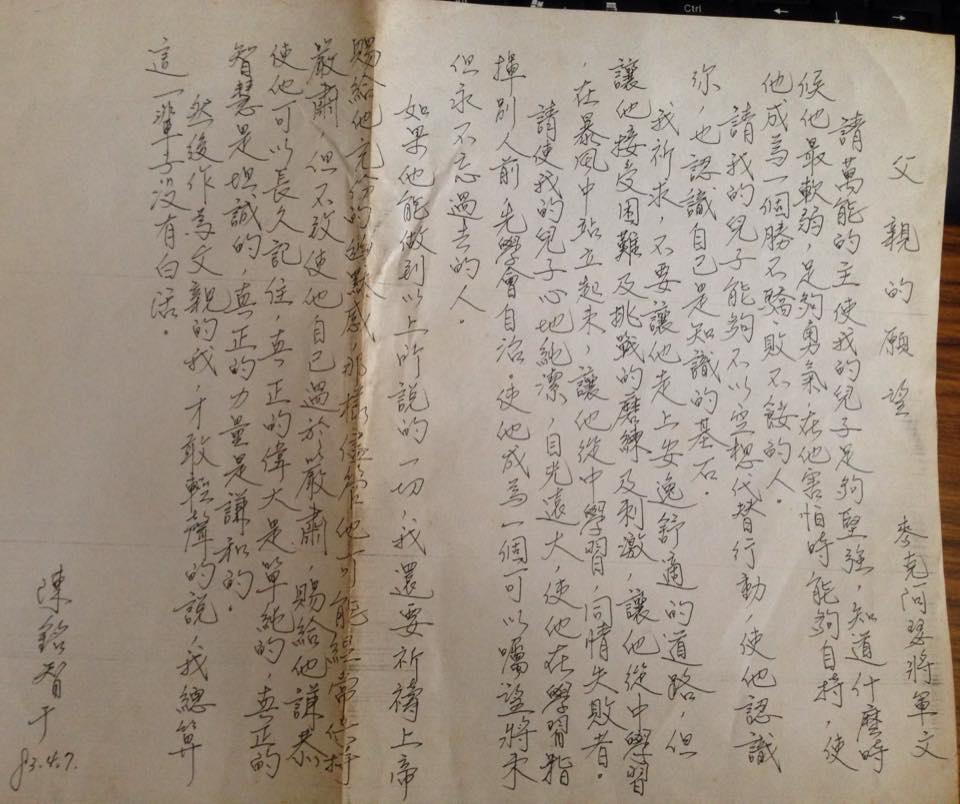 父親的願望　麥克阿瑟將軍文
請萬能的主使我的兒子足夠堅強，知道什麼時
候他最軟弱，足夠勇氣在他害怕時能夠自持，使
他成為一個勝不驕，敗不餒的人。
請我的兒子能夠不以空想代替行動，使他認識
你，也認識自己是知識的基石。
我祈求，不要讓他走上安逸舒適的道路，但
讓他接受困難及挑戰的磨練及刺激，讓他從中學習
，在暴風中站立起來，讓他從中學習，同情失敗者。
請使我的兒子心地純潔，目光遠大，使他在學習指
揮別人前，先學會自治。使他成為一個可以囑望將來
但永不忘過去的人。
如果他能做到以上所說的一切，我還要祈禱上帝
賜給他充份的幽默感，那樣儘管他可能經常保持
嚴肅，但不致使他自己過於嚴肅，賜給他謙恭
使他可以長久記住，真正的偉大是單純的，真正的
智慧是坦誠的，真正的力量是謙和的。
然後作為父親的我，才敢輕聲的說，我總算
這一輩子沒有白活。
陳銘智于
83.4.7.
Ctrl